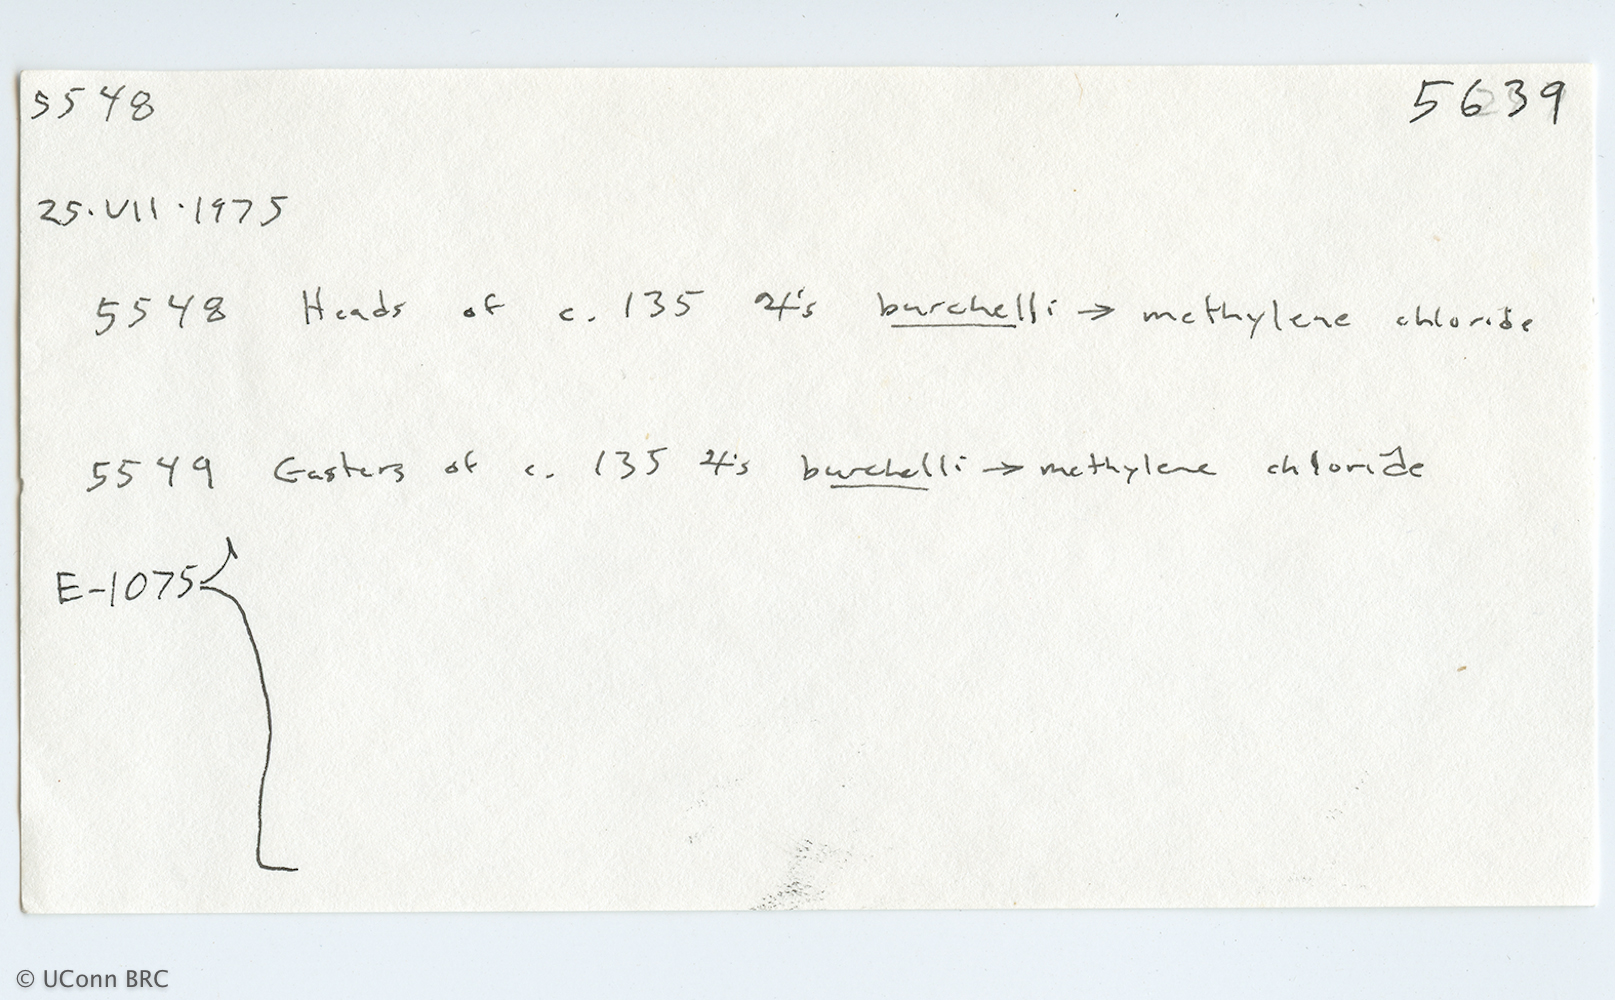 5548 5639
25.VII.1975
5548 Heads of c. 135 ☿'s burchelli → methylene chloride
5549 Gasters of c. 135 ☿'s burchelli → methylene chloride
E-1075
© UConn BRC